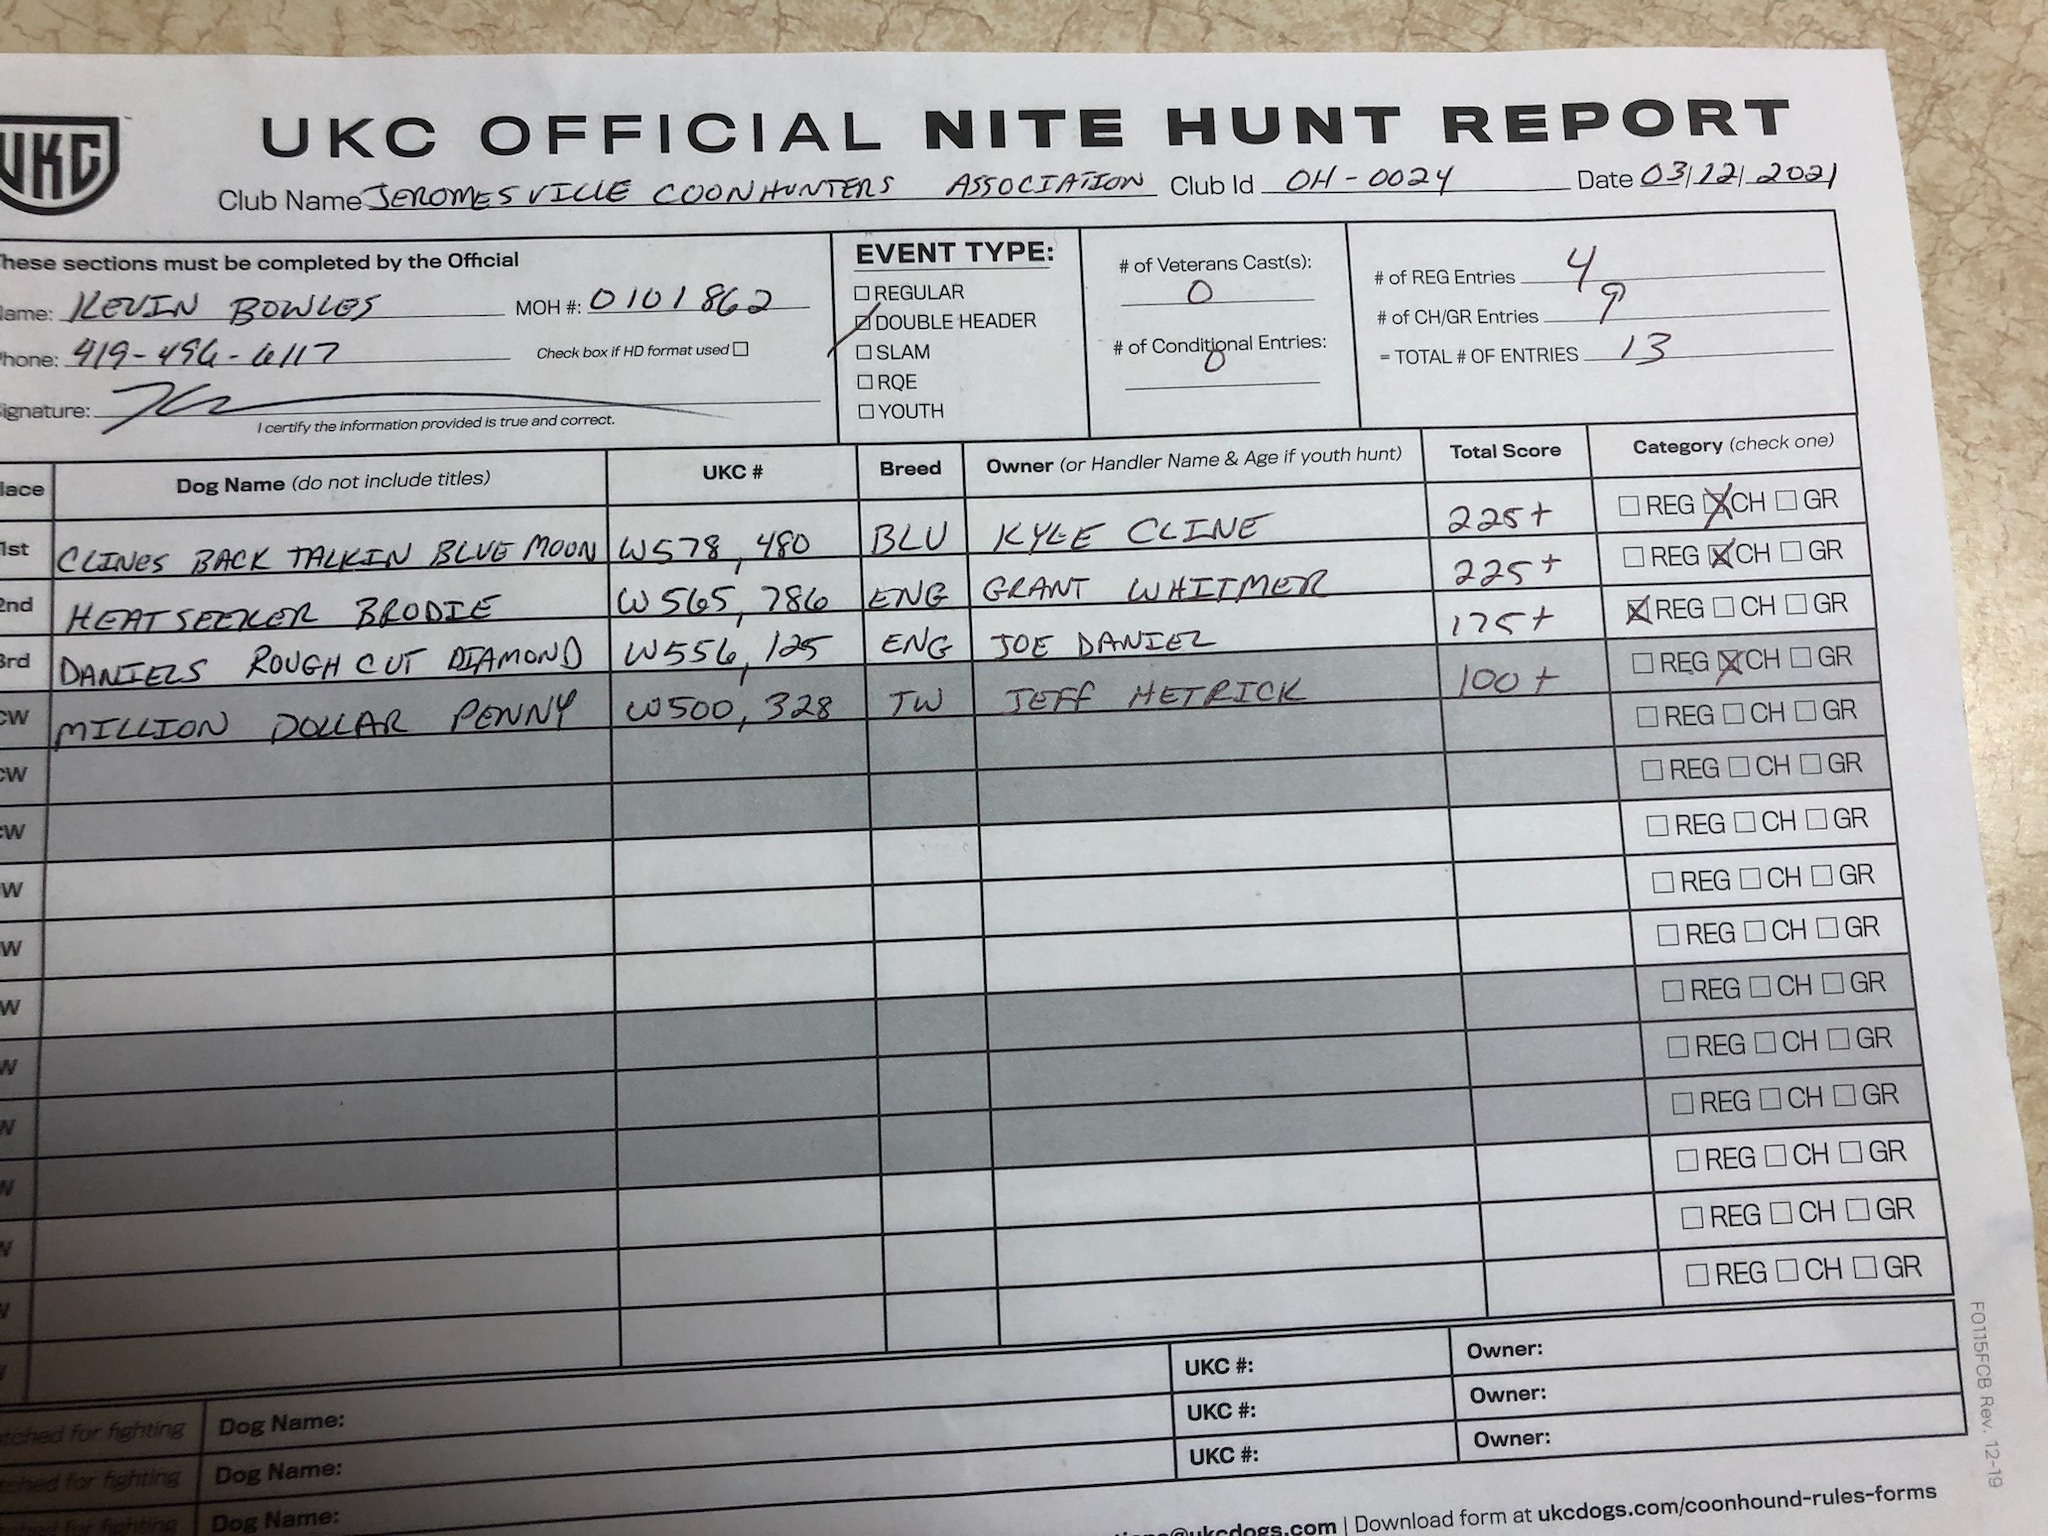 UKC
UKC OFFICIAL NITE HUNT REPORT
Club Name JEROMESVILLE COONHUNTERS ASSOCIATION Club Id OH-0024 Date 03/12/2021
These sections must be completed by the Official
Name: KEVIN BOWLES MOH #: 0101862
Phone: 419-496-6117 Check box if HD format used ☐
Signature:
I certify the information provided is true and correct.
EVENT TYPE:
☐ REGULAR
☑ DOUBLE HEADER
☐ SLAM
☐ RQE
☐ YOUTH
# of Veterans Cast(s):
0
# of Conditional Entries:
0
# of REG Entries 4
# of CH/GR Entries 9
= TOTAL # OF ENTRIES 13
lace Dog Name (do not include titles) UKC # Breed Owner (or Handler Name & Age if youth hunt) Total Score Category (check one)
1st CLINES BACK TALKIN BLUE MOON W578,480 BLU KYLE CLINE 225+ ☐ REG ☒ CH ☐ GR
2nd HEATSEEKER BRODIE W565,786 ENG GRANT WHITMER 225+ ☐ REG ☒ CH ☐ GR
3rd DANIELS ROUGH CUT DIAMOND W556,125 ENG JOE DANIEL 175+ ☒ REG ☐ CH ☐ GR
CW MILLION DOLLAR PENNY W500,328 TW JEFF HETRICK 100+ ☐ REG ☒ CH ☐ GR
CW ☐ REG ☐ CH ☐ GR
CW ☐ REG ☐ CH ☐ GR
W ☐ REG ☐ CH ☐ GR
W ☐ REG ☐ CH ☐ GR
W ☐ REG ☐ CH ☐ GR
W ☐ REG ☐ CH ☐ GR
W ☐ REG ☐ CH ☐ GR
W ☐ REG ☐ CH ☐ GR
W ☐ REG ☐ CH ☐ GR
W ☐ REG ☐ CH ☐ GR
W ☐ REG ☐ CH ☐ GR
tched for fighting Dog Name: UKC #: Owner:
tched for fighting Dog Name: UKC #: Owner:
tched for fighting Dog Name: UKC #: Owner:
@ukcdogs.com | Download form at ukcdogs.com/coonhound-rules-forms
F0115FCB Rev. 12-19